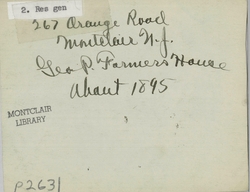 2. Res gen
267 Orange Road
Montclair N.J.
Geo P. Farmers House
About 1895
MONTCLAIR
LIBRARY
P2631